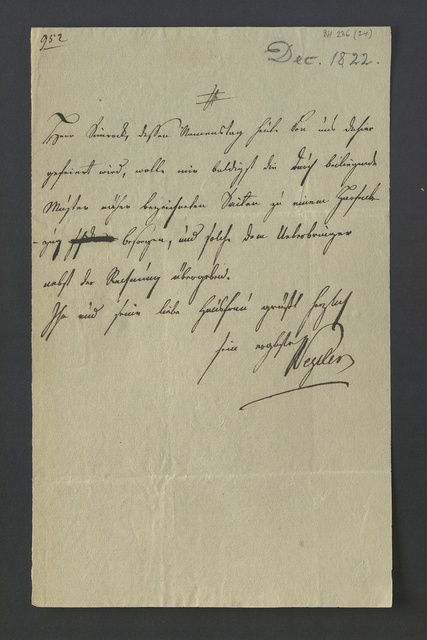 952
BH 236 (24)
Dec. 1822.
Herr Simrock, dessen Namenstag heute bei uns dahier
gefeiert wird, wolle mir baldigst die durch beiliegende
Muster näher bezeichneten Saiten zu einem
besorgen, und solche dem Ueberbringer
nebst der Rechnung übergeben.
Ihn und seine liebe Hausfrau grüßt herzlich
sein ergebster Wegeler